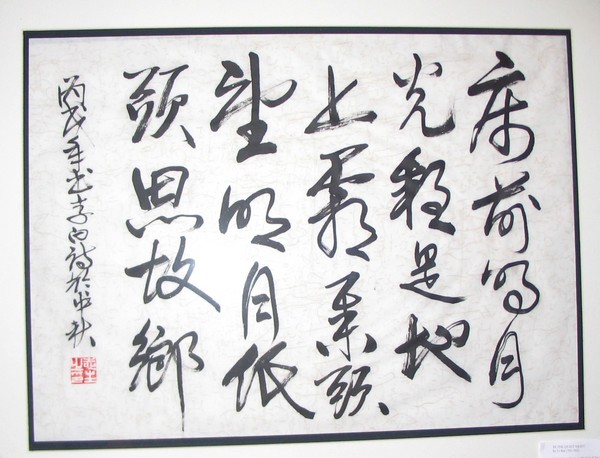 床前明月
光疑是地
上霜举頭
望明月低
頭思故鄉
丙戌年书李白詩於中秋